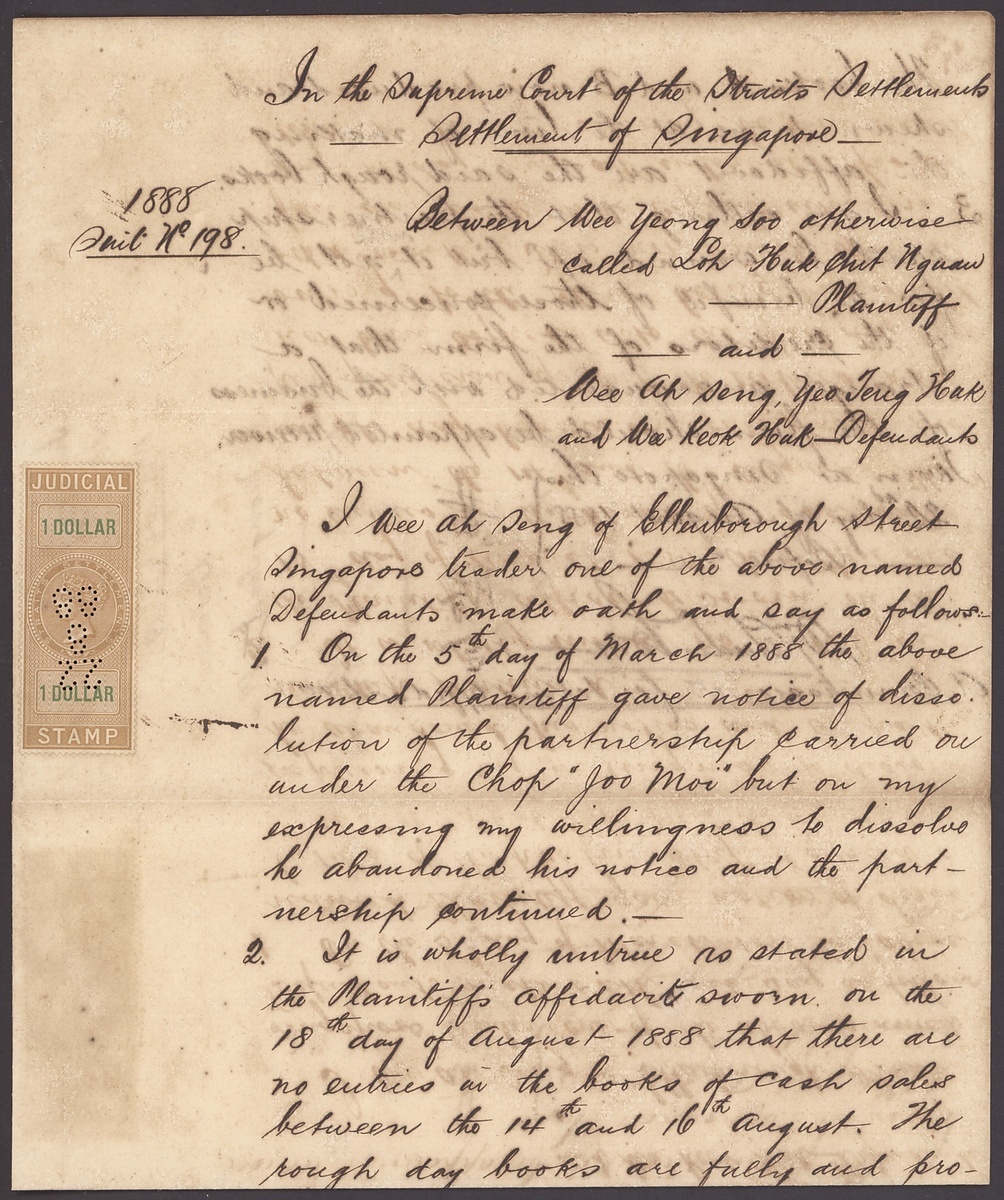 In the Supreme Court of the Straits Settlements
Settlement of Singapore
1888
Suit No 198.
Between Wee Yeong Soo otherwise
called Loh Huk Chit Nguan
Plaintiff
and
Wee Ah Seng, Yeo Teng Huk
and Wee Keok Huk — Defendants
I Wee Ah Seng of Ellenborough Street
Singapore trader one of the above named
Defendants make oath and say as follows:-
1. On the 5th day of March 1888 the above
named Plaintiff gave notice of disso-
lution of the partnership carried on
under the Chop "Joo Moi" but on my
expressing my willingness to dissolve
he abandoned his notice and the part-
nership continued. —
2. It is wholly untrue as stated in
the Plaintiff's affidavit sworn on the
18th day of August 1888 that there are
no entries in the books of cash sales
between the 14th and 16th August. The
rough day books are fully and pro-
JUDICIAL
1 DOLLAR
STRAITS SETTLEMENTS
1 DOLLAR
STAMP